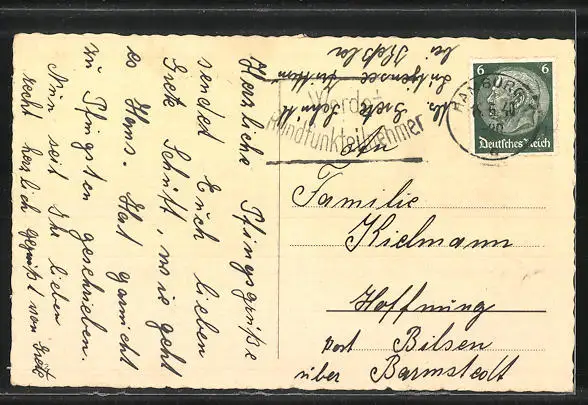 Herzliche Pfingsgrüße
sendet Euch lieben
Grete Schütt, wie geht
es Hans. Hat garnicht
zu Pfingsten geschrieben.
Nun seit Ihr lieben
recht herzlich gegrüßt von Grete
Abs. Grete Schütt
Lütjensee
bei
Werdet
Rundfunkteilnehmer
HAMBURG
6 6
Deutsches Reich
Familie
Kielmann
Hoffnung
post Bilsen
über Barmstedt